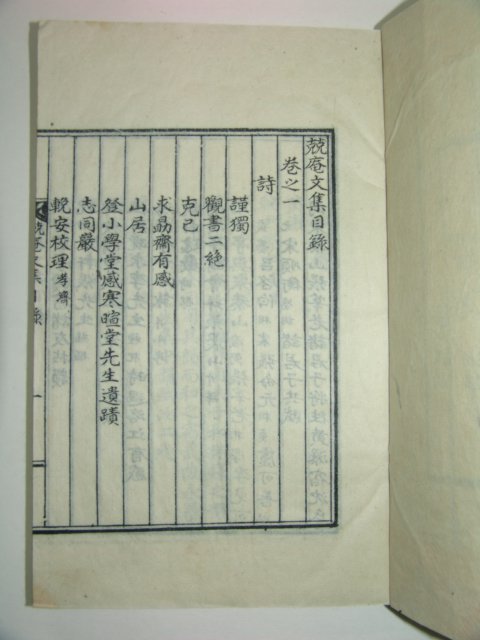 兢庵文集目錄
卷之一
詩
謹獨
觀書二絶
克己
求勗齋有感
山居
登小學堂感寒暄堂先生遺蹟
志同巖
輓安校理孝濟
兢庵文集目錄 一